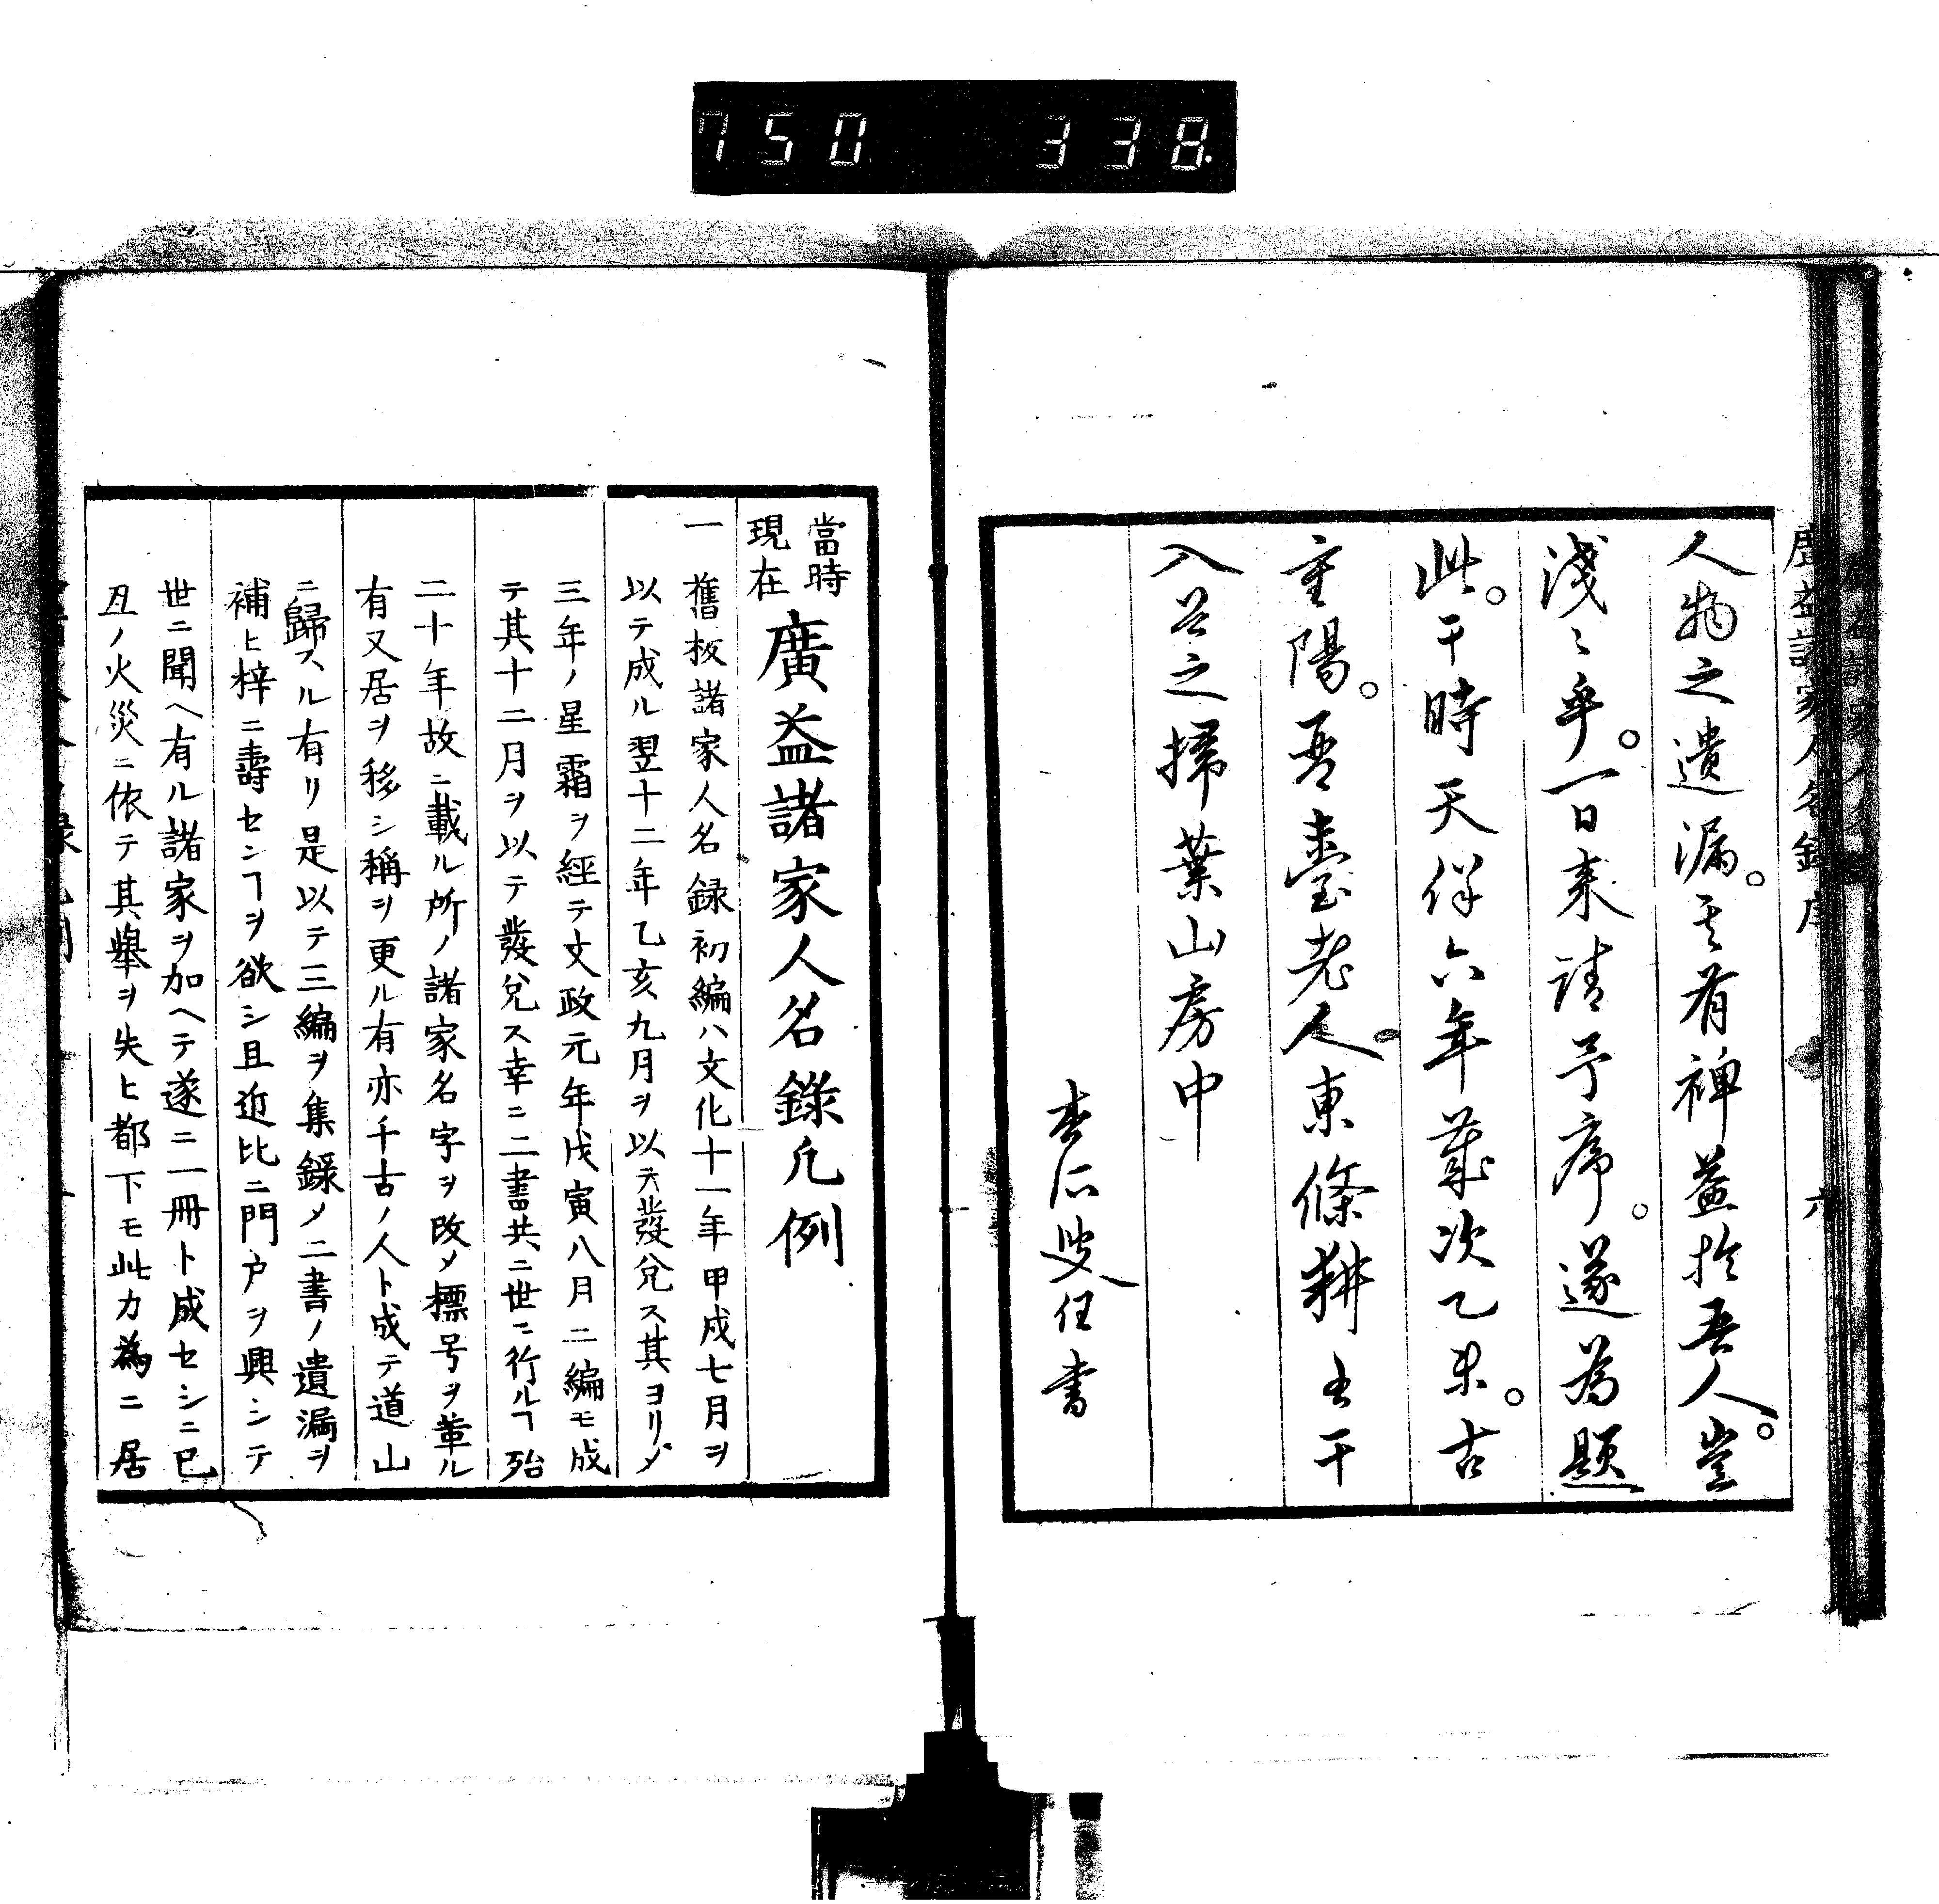 750 338
人物之遺漏。其有裨益於吾人。豈
淺々乎。一日来請予序。遂為題
此。于時天保六年歳次乙未。吉
重陽。吾臺老人。東條耕書于
入谷之掃葉山房中
李仁叟任書
廣益諸家人名録序
六
當時
現在
廣益諸家人名錄凢例
一 舊板諸家人名録初編ハ文化十一年甲戌七月ヲ
以テ成ル翌十二年乙亥九月ヲ以テ發兌ス其ヨリ〆
三年ノ星霜ヲ經テ文政元年戊寅八月二編モ成
テ其十二月ヲ以テ發兌ス幸ニ二書共ニ世ニ行ルヿ殆
二十年故ニ載ル所ノ諸家名字ヲ改メ標号ヲ革ル
有又居ヲ移シ稱ヲ更ル有亦千古ノ人ト成テ道山
ニ歸スル有リ是以テ三編ヲ集錄〆二書ノ遺漏ヲ
補ヒ梓ニ壽センヿヲ欲シ且近比ニ門戸ヲ興シテ
世ニ聞ヘ有ル諸家ヲ加ヘテ遂ニ一冊ト成セシニ已
丑ノ火災ニ依テ其舉ヲ失ヒ都下モ此カ為ニ居